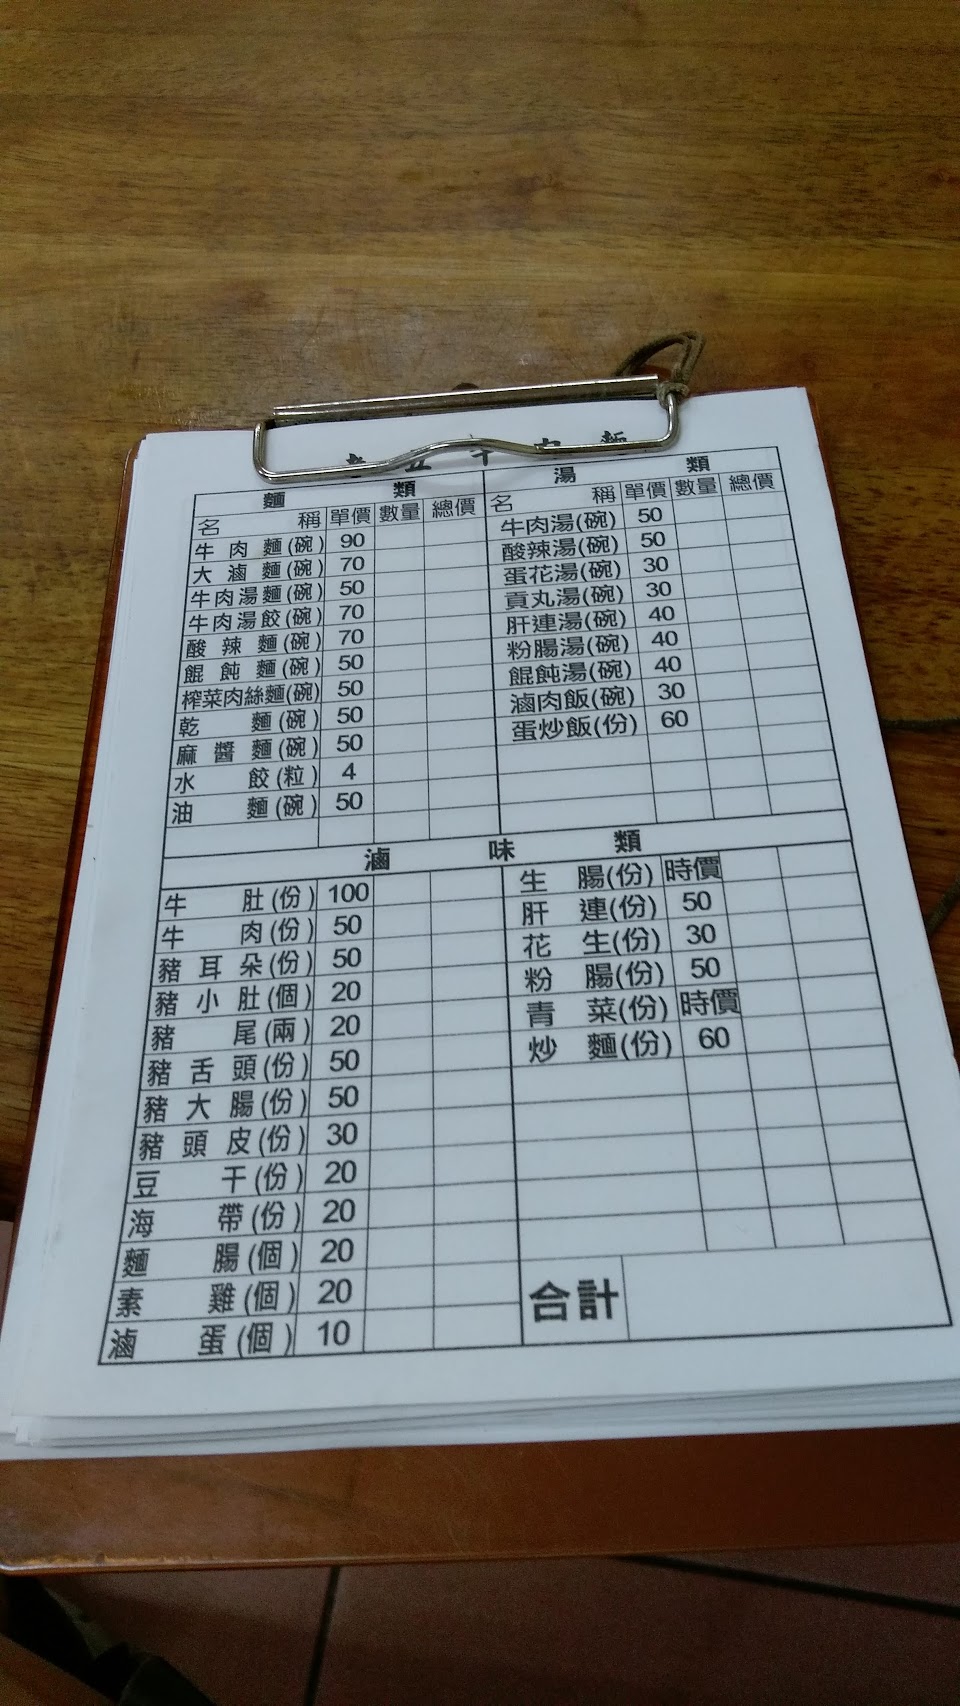 麵類
名稱 單價 數量 總價
牛肉麵(碗) 90
大滷麵(碗) 70
牛肉湯麵(碗) 50
牛肉湯餃(碗) 70
酸辣麵(碗) 70
餛飩麵(碗) 50
榨菜肉絲麵(碗) 50
乾麵(碗) 50
麻醬麵(碗) 50
水餃(粒) 4
油麵(碗) 50
湯類
名稱 單價 數量 總價
牛肉湯(碗) 50
酸辣湯(碗) 50
蛋花湯(碗) 30
貢丸湯(碗) 30
肝連湯(碗) 40
粉腸湯(碗) 40
餛飩湯(碗) 40
滷肉飯(碗) 30
蛋炒飯(份) 60
滷味類
牛肚(份) 100
牛肉(份) 50
豬耳朵(份) 50
豬小肚(個) 20
豬尾(兩) 20
豬舌頭(份) 50
豬大腸(份) 50
豬頭皮(份) 30
豆干(份) 20
海帶(份) 20
麵腸(個) 20
素雞(個) 20
滷蛋(個) 10
生腸(份) 時價
肝連(份) 50
花生(份) 30
粉腸(份) 50
青菜(份) 時價
炒麵(份) 60
合計